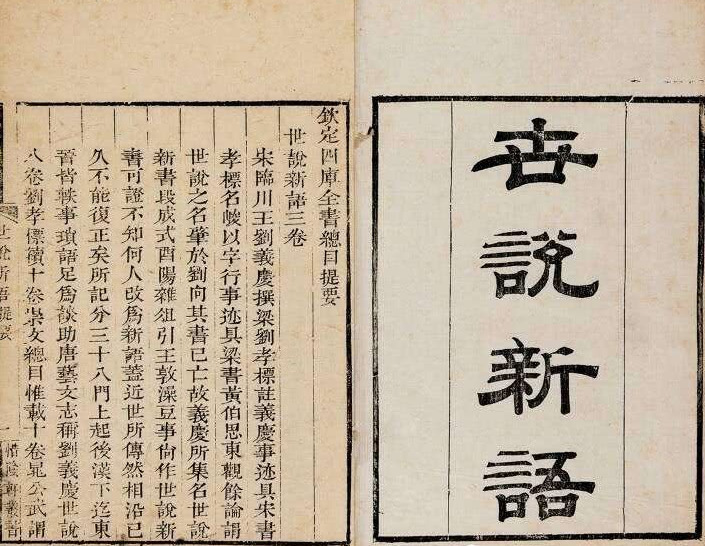 世說新語
欽定四庫全書總目提要
世說新語三卷
宋臨川王劉義慶撰梁劉孝標註義慶事迹具宋書
孝標名峻以字行事迹具梁書黃伯思東觀餘論謂
世說之名肇於劉向其書已亡故義慶所集名世說
新書段成式酉陽雜俎引王敦澡豆事尚作世說新
書可證不知何人改為新語蓋近世所傳然相沿已
久不能復正矣所記分三十八門上起後漢下迄東
晉皆軼事瑣語足為談助唐藝文志稱劉義慶世說
八卷劉孝標續十卷崇文總目惟載十卷晁公武謂
世說新語提要
一
惜陰軒叢書